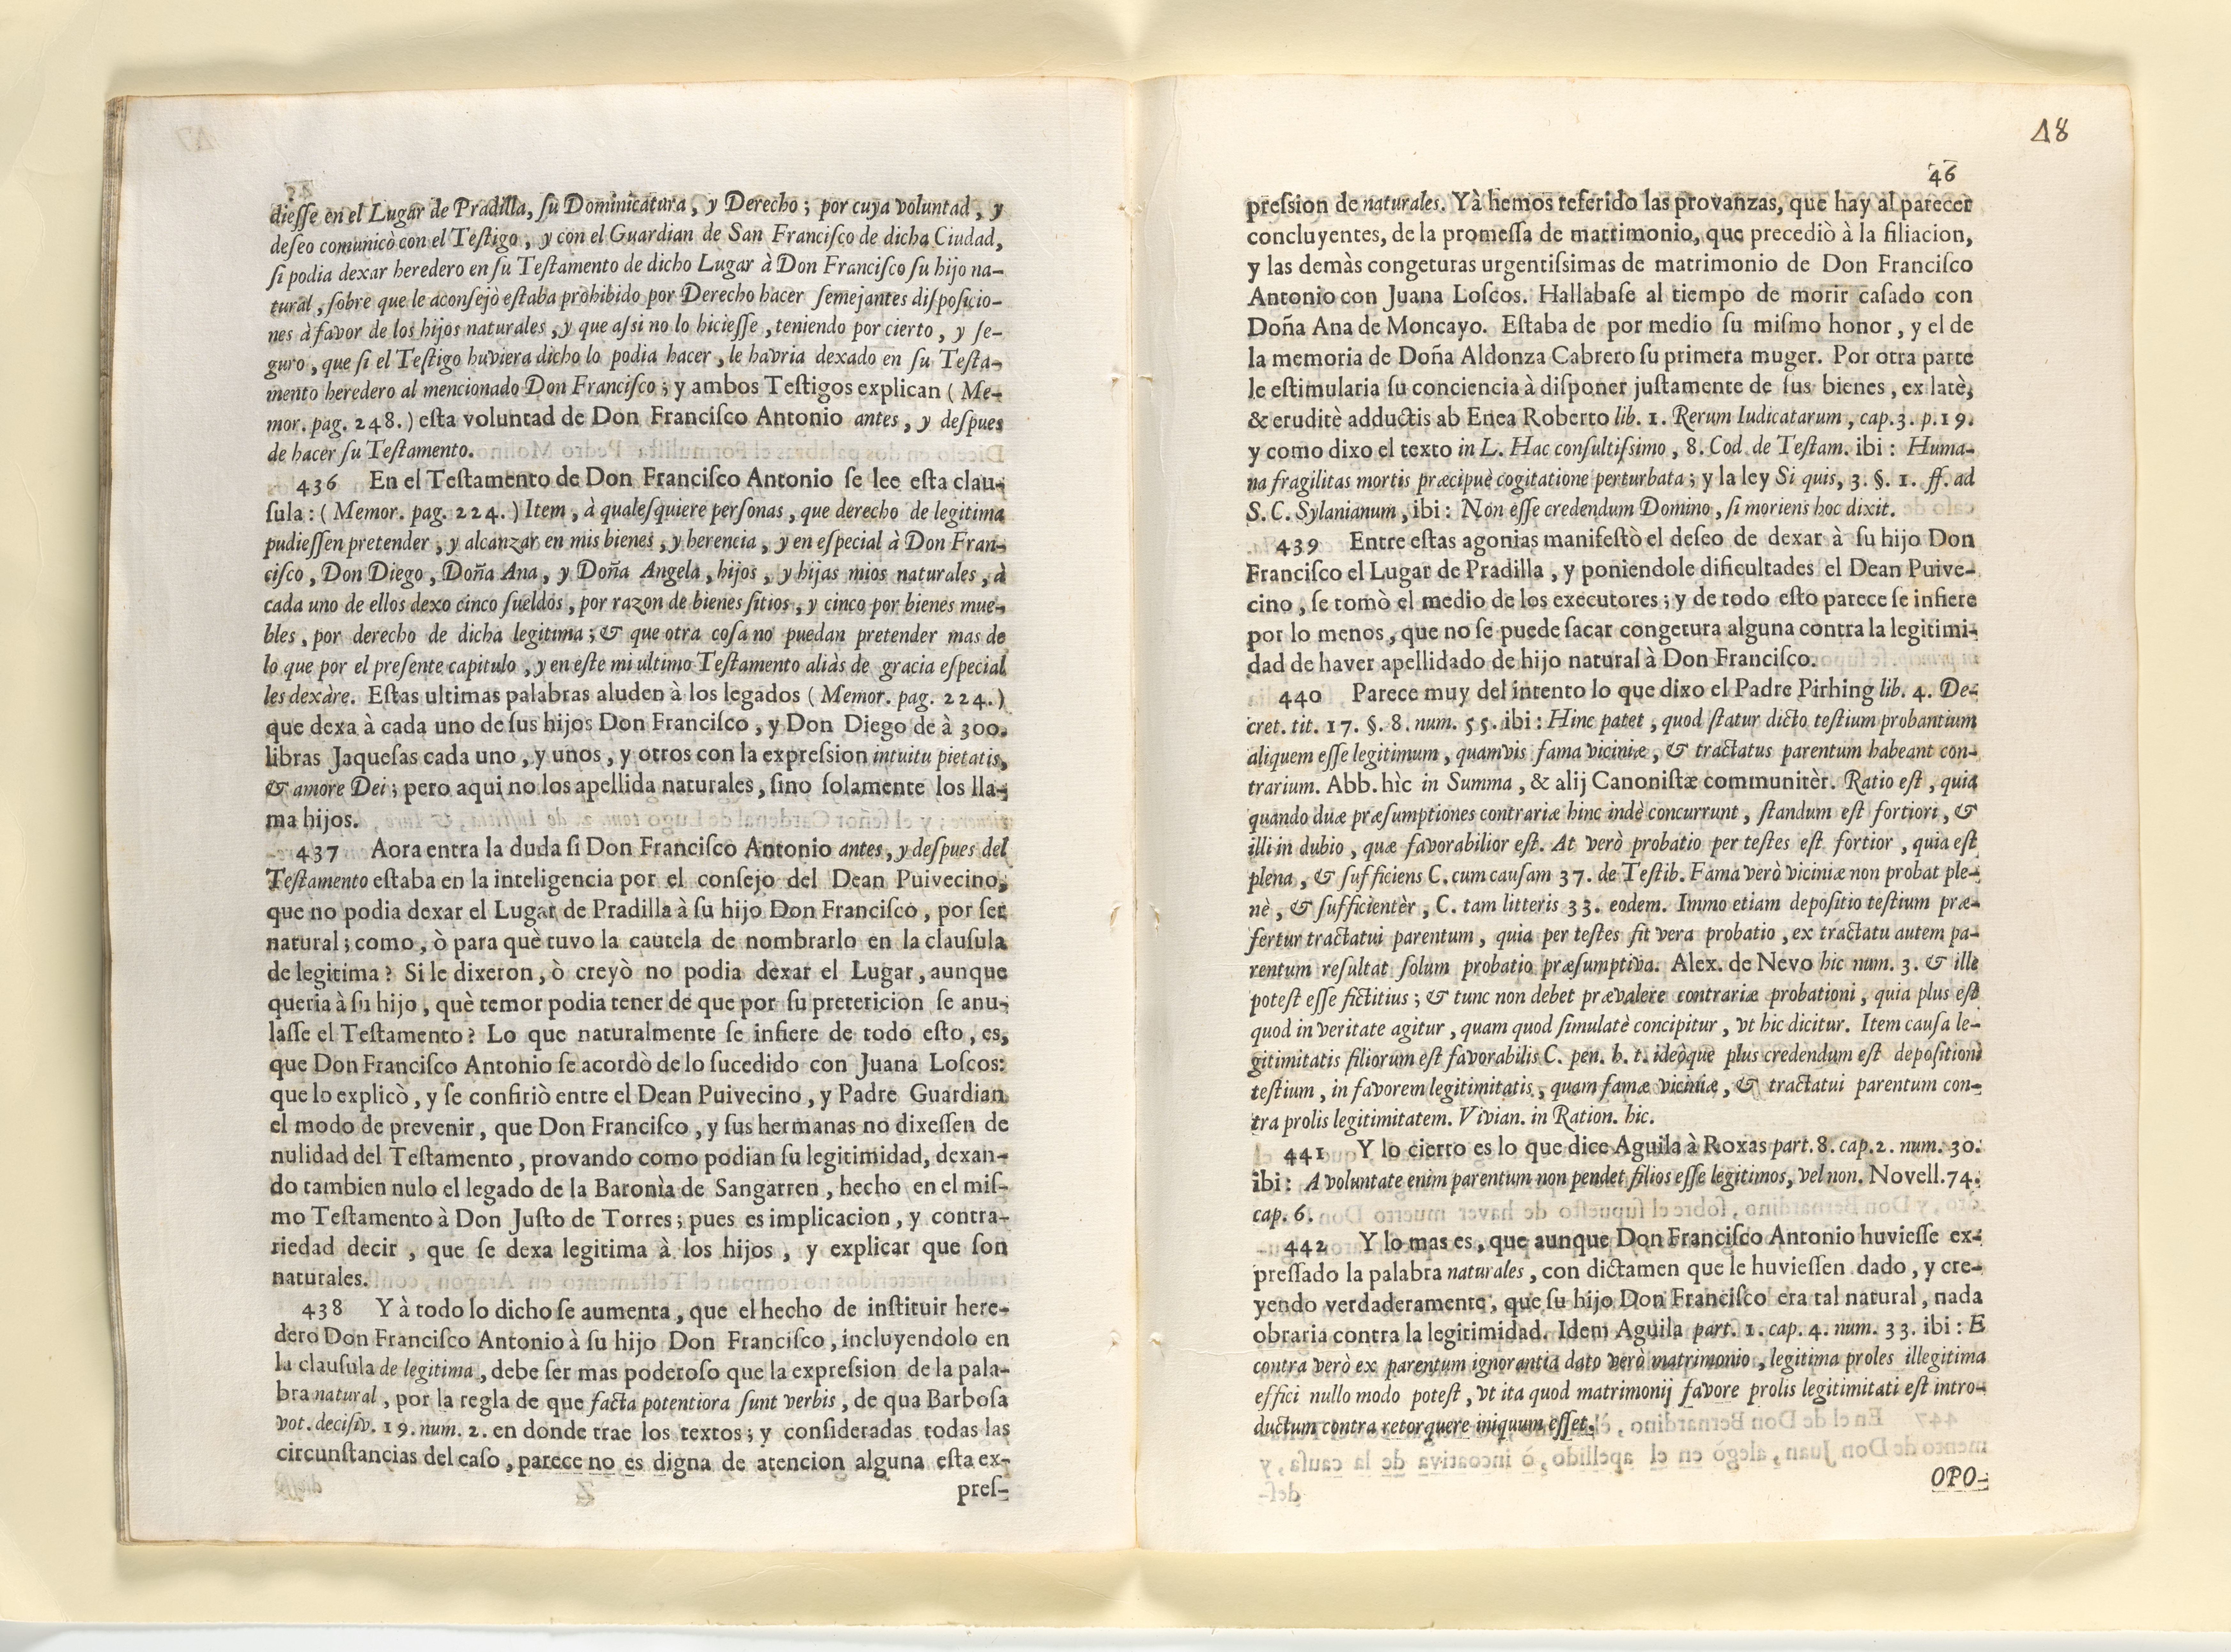 dieſſe en el Lugar de Pradilla, ſu Dominicatura, y Derecho; por cuya voluntad, y
deſeo comunicò con el Teſtigo, y con el Guardian de San Franciſco de dicha Ciudad,
ſi podia dexar heredero en ſu Teſtamento de dicho Lugar à Don Franciſco ſu hijo na-
tural, ſobre que le aconſejò eſtaba prohibido por Derecho hacer ſemejantes diſpoſicio-
nes à favor de los hijos naturales, y que aſsi no lo hicieſſe, teniendo por cierto, y ſe-
guro, que ſi el Teſtigo huviera dicho lo podia hacer, le havria dexado en ſu Teſta-
mento heredero al mencionado Don Franciſco; y ambos Teſtigos explican (Me-
mor. pag. 248.) eſta voluntad de Don Franciſco Antonio antes, y deſpues
de hacer ſu Teſtamento.
436 En el Teſtamento de Don Franciſco Antonio ſe lee eſta clau-
ſula: (Memor. pag. 224.) Item, à qualeſquiere perſonas, que derecho de legitima
pudieſſen pretender, y alcanzar en mis bienes, y herencia, y en eſpecial à Don Fran-
ciſco, Don Diego, Doña Ana, y Doña Angela, hijos, y hijas mios naturales, à
cada uno de ellos dexo cinco ſueldos, por razon de bienes ſitios, y cinco por bienes mue-
bles, por derecho de dicha legitima; & que otra coſa no puedan pretender mas de
lo que por el preſente capitulo, y en eſte mi ultimo Teſtamento aliàs de gracia eſpecial
les dexàre. Eſtas ultimas palabras aluden à los legados (Memor. pag. 224.)
que dexa à cada uno de ſus hijos Don Franciſco, y Don Diego de à 300.
libras Jaqueſas cada uno, y unos, y otros con la expreſsion intuitu pietatis,
& amore Dei; pero aqui no los apellida naturales, ſino ſolamente los lla-
ma hijos.
437 Aora entra la duda ſi Don Franciſco Antonio antes, y deſpues del
Teſtamento eſtaba en la inteligencia por el conſejo del Dean Puivecino,
que no podia dexar el Lugar de Pradilla à ſu hijo Don Franciſco, por ſer
natural; como, ò para què tuvo la cautela de nombrarlo en la clauſula
de legitima? Si le dixeron, ò creyò no podia dexar el Lugar, aunque
queria à ſu hijo, què temor podia tener de que por ſu pretericion ſe anu-
laſſe el Teſtamento? Lo que naturalmente ſe infiere de todo eſto, es,
que Don Franciſco Antonio ſe acordò de lo ſucedido con Juana Loſcos:
que lo explicò, y ſe confiriò entre el Dean Puivecino, y Padre Guardian
el modo de prevenir, que Don Franciſco, y ſus hermanas no dixeſſen de
nulidad del Teſtamento, provando como podian ſu legitimidad, dexan-
do tambien nulo el legado de la Baronìa de Sangarren, hecho en el miſ-
mo Teſtamento à Don Juſto de Torres; pues es implicacion, y contra-
riedad decir, que ſe dexa legitima à los hijos, y explicar que ſon
naturales.
438 Y à todo lo dicho ſe aumenta, que el hecho de inſtituir here-
dero Don Franciſco Antonio à ſu hijo Don Franciſco, incluyendolo en
la clauſula de legitima, debe ſer mas poderoſo que la expreſsion de la pala-
bra natural, por la regla de que facta potentiora ſunt verbis, de qua Barboſa
vot. deciſiv. 19. num. 2. en donde trae los textos; y conſideradas todas las
circunſtancias del caſo, parece no es digna de atencion alguna eſta ex-
preſ-
48
46
preſsion de naturales. Yà hemos referido las provanzas, que hay al parecer
concluyentes, de la promeſſa de matrimonio, que precediò à la filiacion,
y las demàs congeturas urgentiſsimas de matrimonio de Don Franciſco
Antonio con Juana Loſcos. Hallabaſe al tiempo de morir caſado con
Doña Ana de Moncayo. Eſtaba de por medio ſu miſmo honor, y el de
la memoria de Doña Aldonza Cabrero ſu primera muger. Por otra parte
le eſtimularia ſu conciencia à diſponer juſtamente de ſus bienes, ex latè,
& eruditè adductis ab Enea Roberto lib. 1. Rerum Iudicatarum, cap. 3. p. 19.
y como dixo el texto in L. Hac conſultiſsimo, 8. Cod. de Teſtam. ibi: Huma-
na fragilitas mortis præcipuè cogitatione perturbata; y la ley Si quis, 3. §. 1. ff. ad
S. C. Sylanianum, ibi: Non eſſe credendum Domino, ſi moriens hoc dixit.
439 Entre eſtas agonias manifeſtò el deſeo de dexar à ſu hijo Don
Franciſco el Lugar de Pradilla, y poniendole dificultades el Dean Puive-
cino, ſe tomò el medio de los executores; y de todo eſto parece ſe infiere
por lo menos, que no ſe puede ſacar congetura alguna contra la legitimi-
dad de haver apellidado de hijo natural à Don Franciſco.
440 Parece muy del intento lo que dixo el Padre Pirhing lib. 4. De-
cret. tit. 17. §. 8. num. 55. ibi: Hinc patet, quod ſtatur dicto teſtium probantium
aliquem eſſe legitimum, quamvis fama viciniæ, & tractatus parentum habeant con-
trarium. Abb. hìc in Summa, & alij Canoniſtæ communitèr. Ratio eſt, quia
quando duæ præſumptiones contrariæ hinc indè concurrunt, ſtandum eſt fortiori, &
illi in dubio, quæ favorabilior eſt. At verò probatio per teſtes eſt fortior, quia eſt
plena, & ſufficiens C. cum cauſam 37. de Teſtib. Fama verò viciniæ non probat ple-
nè, & ſufficientèr, C. tam litteris 33. eodem. Immo etiam depoſitio teſtium præ-
fertur tractatui parentum, quia per teſtes fit vera probatio, ex tractatu autem pa-
rentum reſultat ſolum probatio præſumptiva. Alex. de Nevo hìc num. 3. & ille
poteſt eſſe fictitius; & tunc non debet prævalere contrariæ probationi, quia plus eſt
quod in veritate agitur, quam quod ſimulatè concipitur, vt hic dicitur. Item cauſa le-
gitimitatis filiorum eſt favorabilis C. pen. h. t. ideòque plus credendum eſt depoſitioni
teſtium, in favorem legitimitatis, quam famæ viciniæ, & tractatui parentum con-
tra prolis legitimitatem. Vivian. in Ration. hic.
441 Y lo cierto es lo que dice Aguila à Roxas part. 8. cap. 2. num. 30.
ibi: A voluntate enim parentum non pendet filios eſſe legitimos, vel non. Novell. 74.
cap. 6.
442 Y lo mas es, que aunque Don Franciſco Antonio huvieſſe ex-
preſſado la palabra naturales, con dictamen que le huvieſſen dado, y cre-
yendo verdaderamente, que ſu hijo Don Franciſco era tal natural, nada
obraria contra la legitimidad. Idem Aguila part. 1. cap. 4. num. 33. ibi: E
contra verò ex parentum ignorantia dato verò matrimonio, legitima proles illegitima
effici nullo modo poteſt, vt ita quod matrimonij favore prolis legitimitati eſt intro-
ductum contra retorquere iniquum eſſet.
OPO-